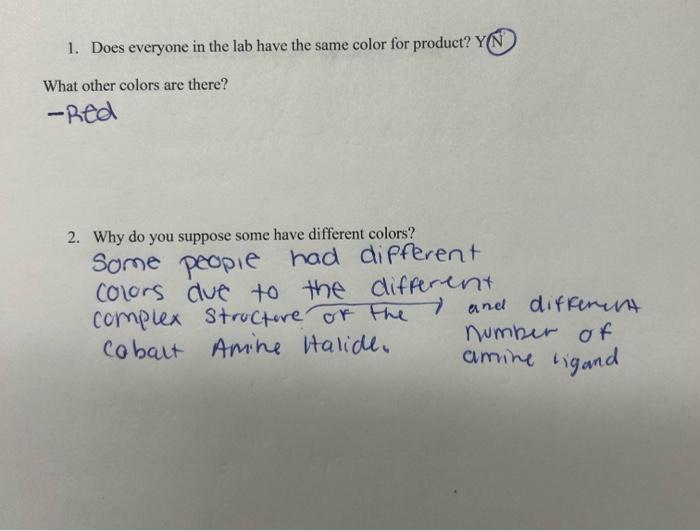 1. Does everyone in the lab have the same color for product? Y N
What other colors are there?
-Red
2. Why do you suppose some have different colors?
Some people had different
colors due to the different
complex structure of the
Cobalt Amine Halide.
and different
number of
amine ligand